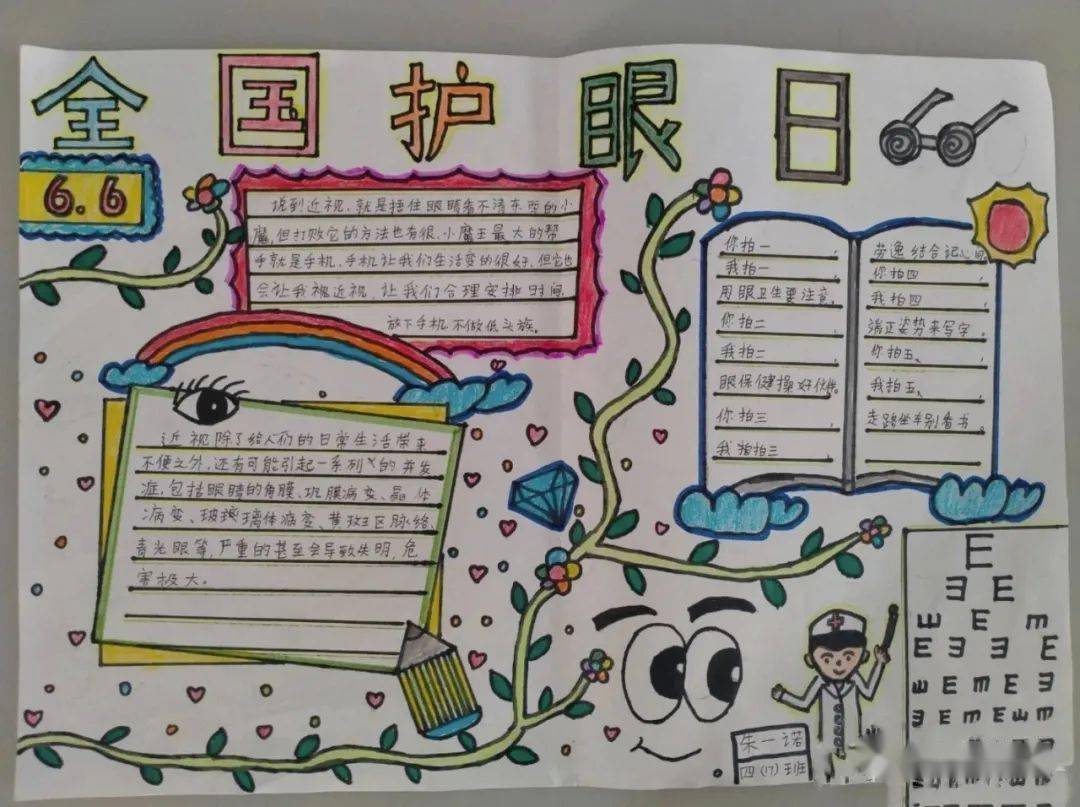 全国护眼日
6.6
提到近视、就是捂住眼睛看不清东西的小
魔,但打败它的方法也有很、小魔王最大的帮
手就是手机、手机让我们生活变的很好、但它也
会让我视近视、让我们合理安排时间
放下手机不做低头族。
近视除了给人们的日常生活带来
不便之外,还有可能引起一系列的并发
症,包括眼睛的角膜、巩膜病变、晶体
病变、玻璃体病变、黄斑区脉络、
青光眼等,严重的甚至会导致失明,危
害极大。
你拍一,
我拍一,
用眼卫生要注意。
你拍二,
我拍二,
眼保健操好伙伴。
你拍三,
我拍拍三,
劳逸结合记心间
你拍四,
我拍四,
端正姿势来写字,
你拍五、,
我拍五、
走路坐车别看书。
朱一诺
四(17)班
E
E E
E E E
E E E E
E E E E E
E E E E E E